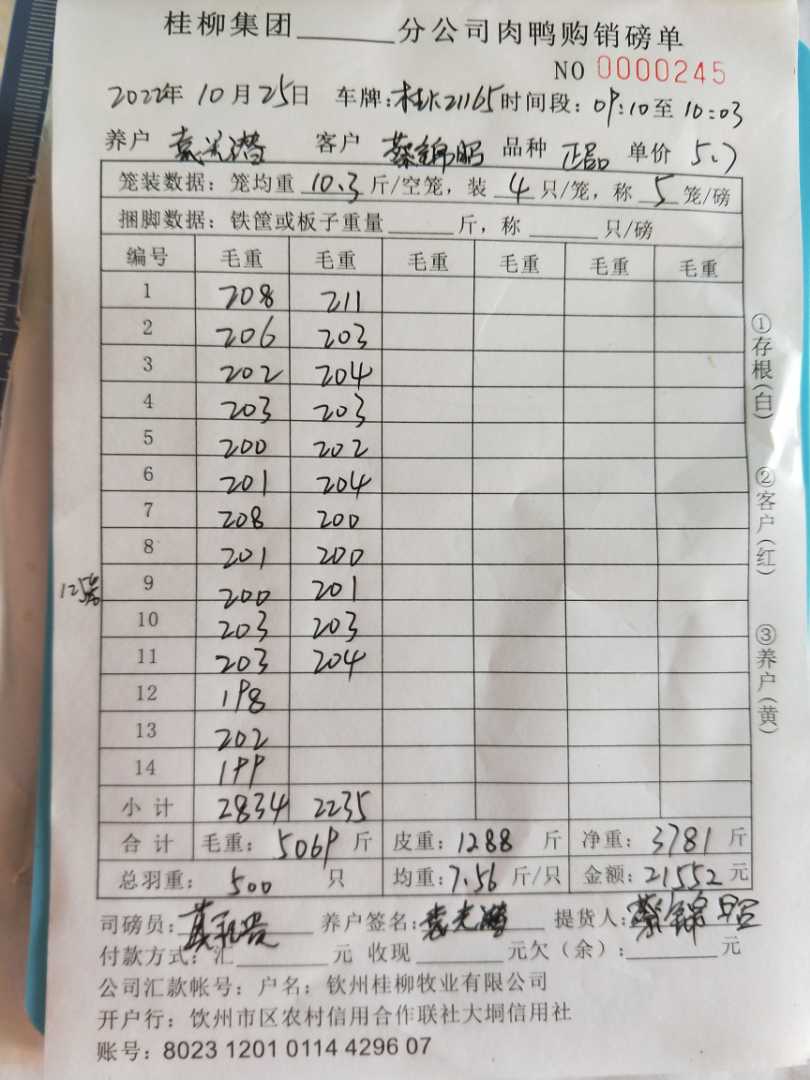 桂柳集团______分公司肉鸭购销磅单
NO 0000245
2022年10月25日 车牌:桂K21165时间段:09:10至10:03
养户 袁光潜 客户 蔡锦昭 品种 正品 单价 5.7
笼装数据:笼均重 10.3 斤/空笼,装 4 只/笼,称 5 笼/磅
捆脚数据:铁筐或板子重量______斤,称______只/磅
编号 毛重 毛重 毛重 毛重 毛重 毛重
1 208 211
2 206 203
3 202 204
4 203 203
5 200 202
6 201 204
7 208 200
8 201 200
9 200 201
10 203 203
11 203 204
12 198
13 202
14 199
小计 2834 2235
合计 毛重:5069斤 皮重:1288斤 净重:3781斤
总羽重:500只 均重:7.56斤/只 金额:21552元
司磅员: 养户签名:袁光潜 提货人:蔡锦昭
付款方式:汇______元 收现______元欠(余):______元
公司汇款帐号:户名:钦州桂柳牧业有限公司
开户行:钦州市区农村信用合作联社大垌信用社
账号:8023 1201 0114 4296 07
①存根(白)
②客户(红)
③养户(黄)